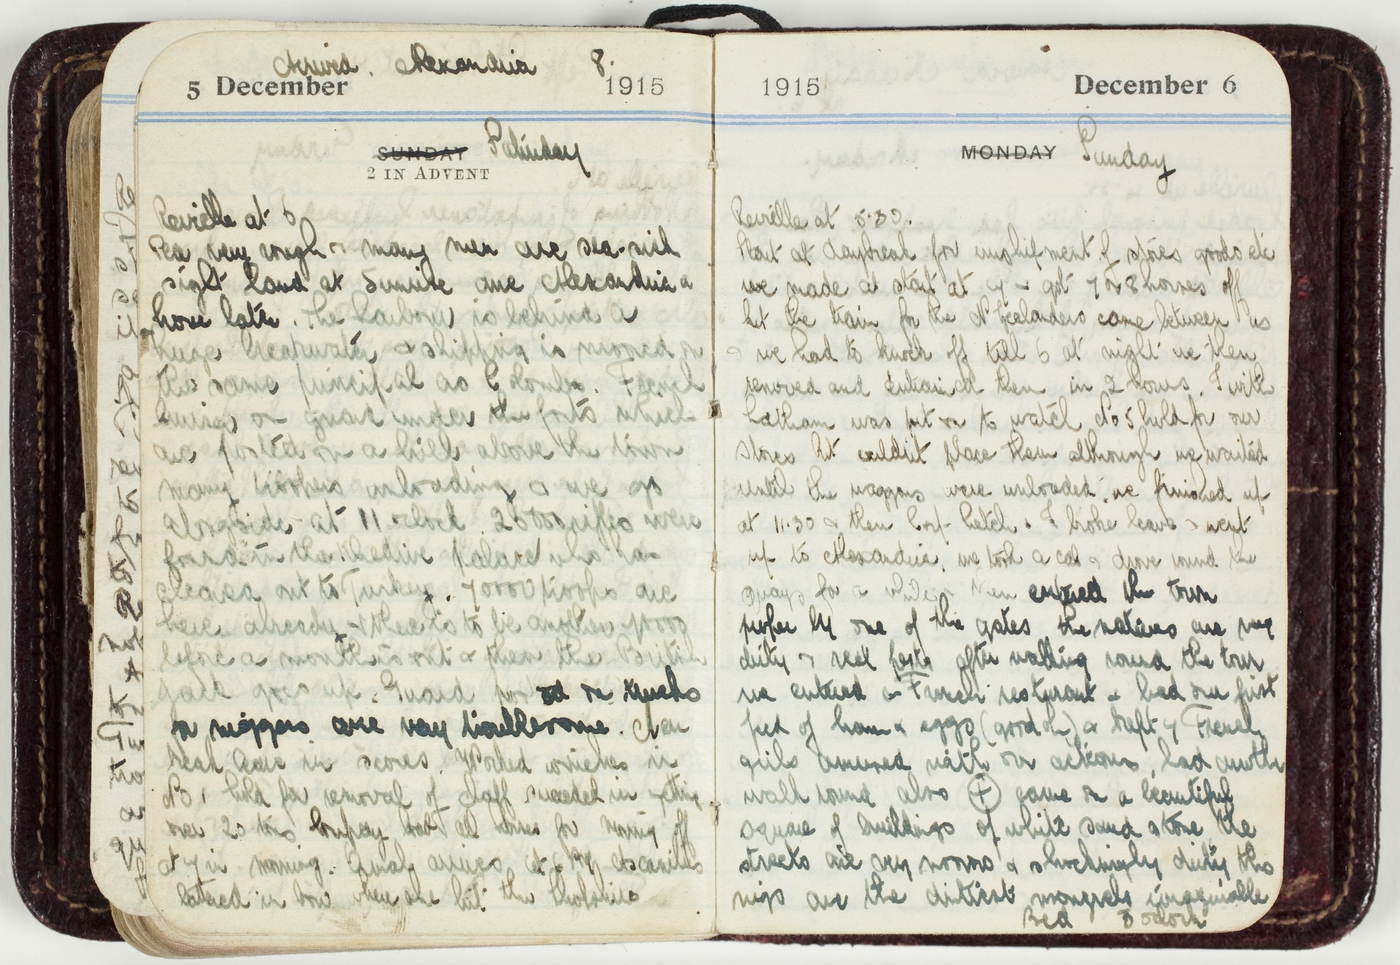 Arrived. Alexandria 8.
5 December 1915
SUNDAY Saturday
2 IN ADVENT
Reveille at 6
Sea very rough & many men are sea-sick
sight land at Sunrise are Alexandria a
hour later. The harbour is behind a
huge breakwater & shipping is moored on
the same principal as Colombo. French
cruiser on guard under the forts which
are posted on a hill above the town
many others unloading & we go
alongside at 11 oclock. 2000 rifles were
found in the Khedive Palace who has
cleared out to Turkey. 70000 troops are
here already & there is to be another
before a month is out & then the British
Guard put on trucks
as niggers are very troublesome. Men
break leave in scores. Worked winches in
No 1 hold for removal of chaff succeeded in getting
over 20 tons
at 7 in morning.
1915 December 6
MONDAY Sunday
Reveille at 5.30.
Start at daybreak for unshipment of stores goods etc
we made a start at 7 & got 7 or 8 horses off
but the train for the N Zealanders came between us
& we had to knock off till 6 at night we then
removed and entrained them in 2 hours. I with
Latham was put on to watch No 5 hold for our
stores but couldnt place them although we waited
until the waggons were unloaded. we finished up
at 11.30 & then Corp. Hetch & I broke leave & went
up to Alexandria, we took a cab & drove round the
quays for a while & then entered the town
proper by one of the gates the natives are very
dirty & after walking round the town
we entered a French resturant & had our first
feed of ham & eggs (good oh) & kept 4 French
girls amused with our actions, had another
walk round also came on a beautiful
square of buildings of white sand stone the
streets are very narrow & shockingly dirty the
nigs are the dirtiest mongrels imaginable
Bed 3 oclock